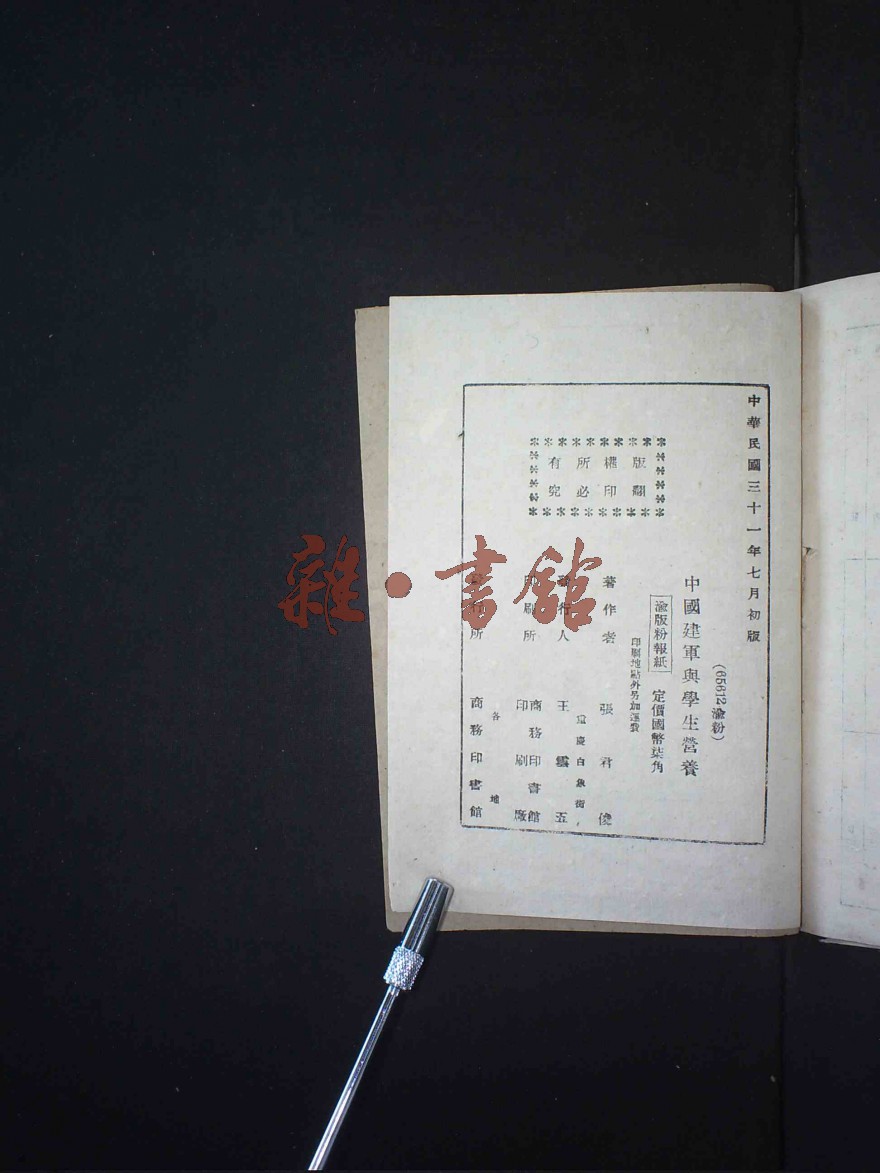 中華民國三十一年七月初版
版權所有
翻印必究
(65612渝粉)
中國建軍與學生營養
渝版粉報紙 定價國幣柒角
印刷地點外另加運費
著作者 張君俊
重慶白象街
發行人 王雲五
印刷所 商務印書館
印刷廠
各地
發行所 商務印書館
雜·書館